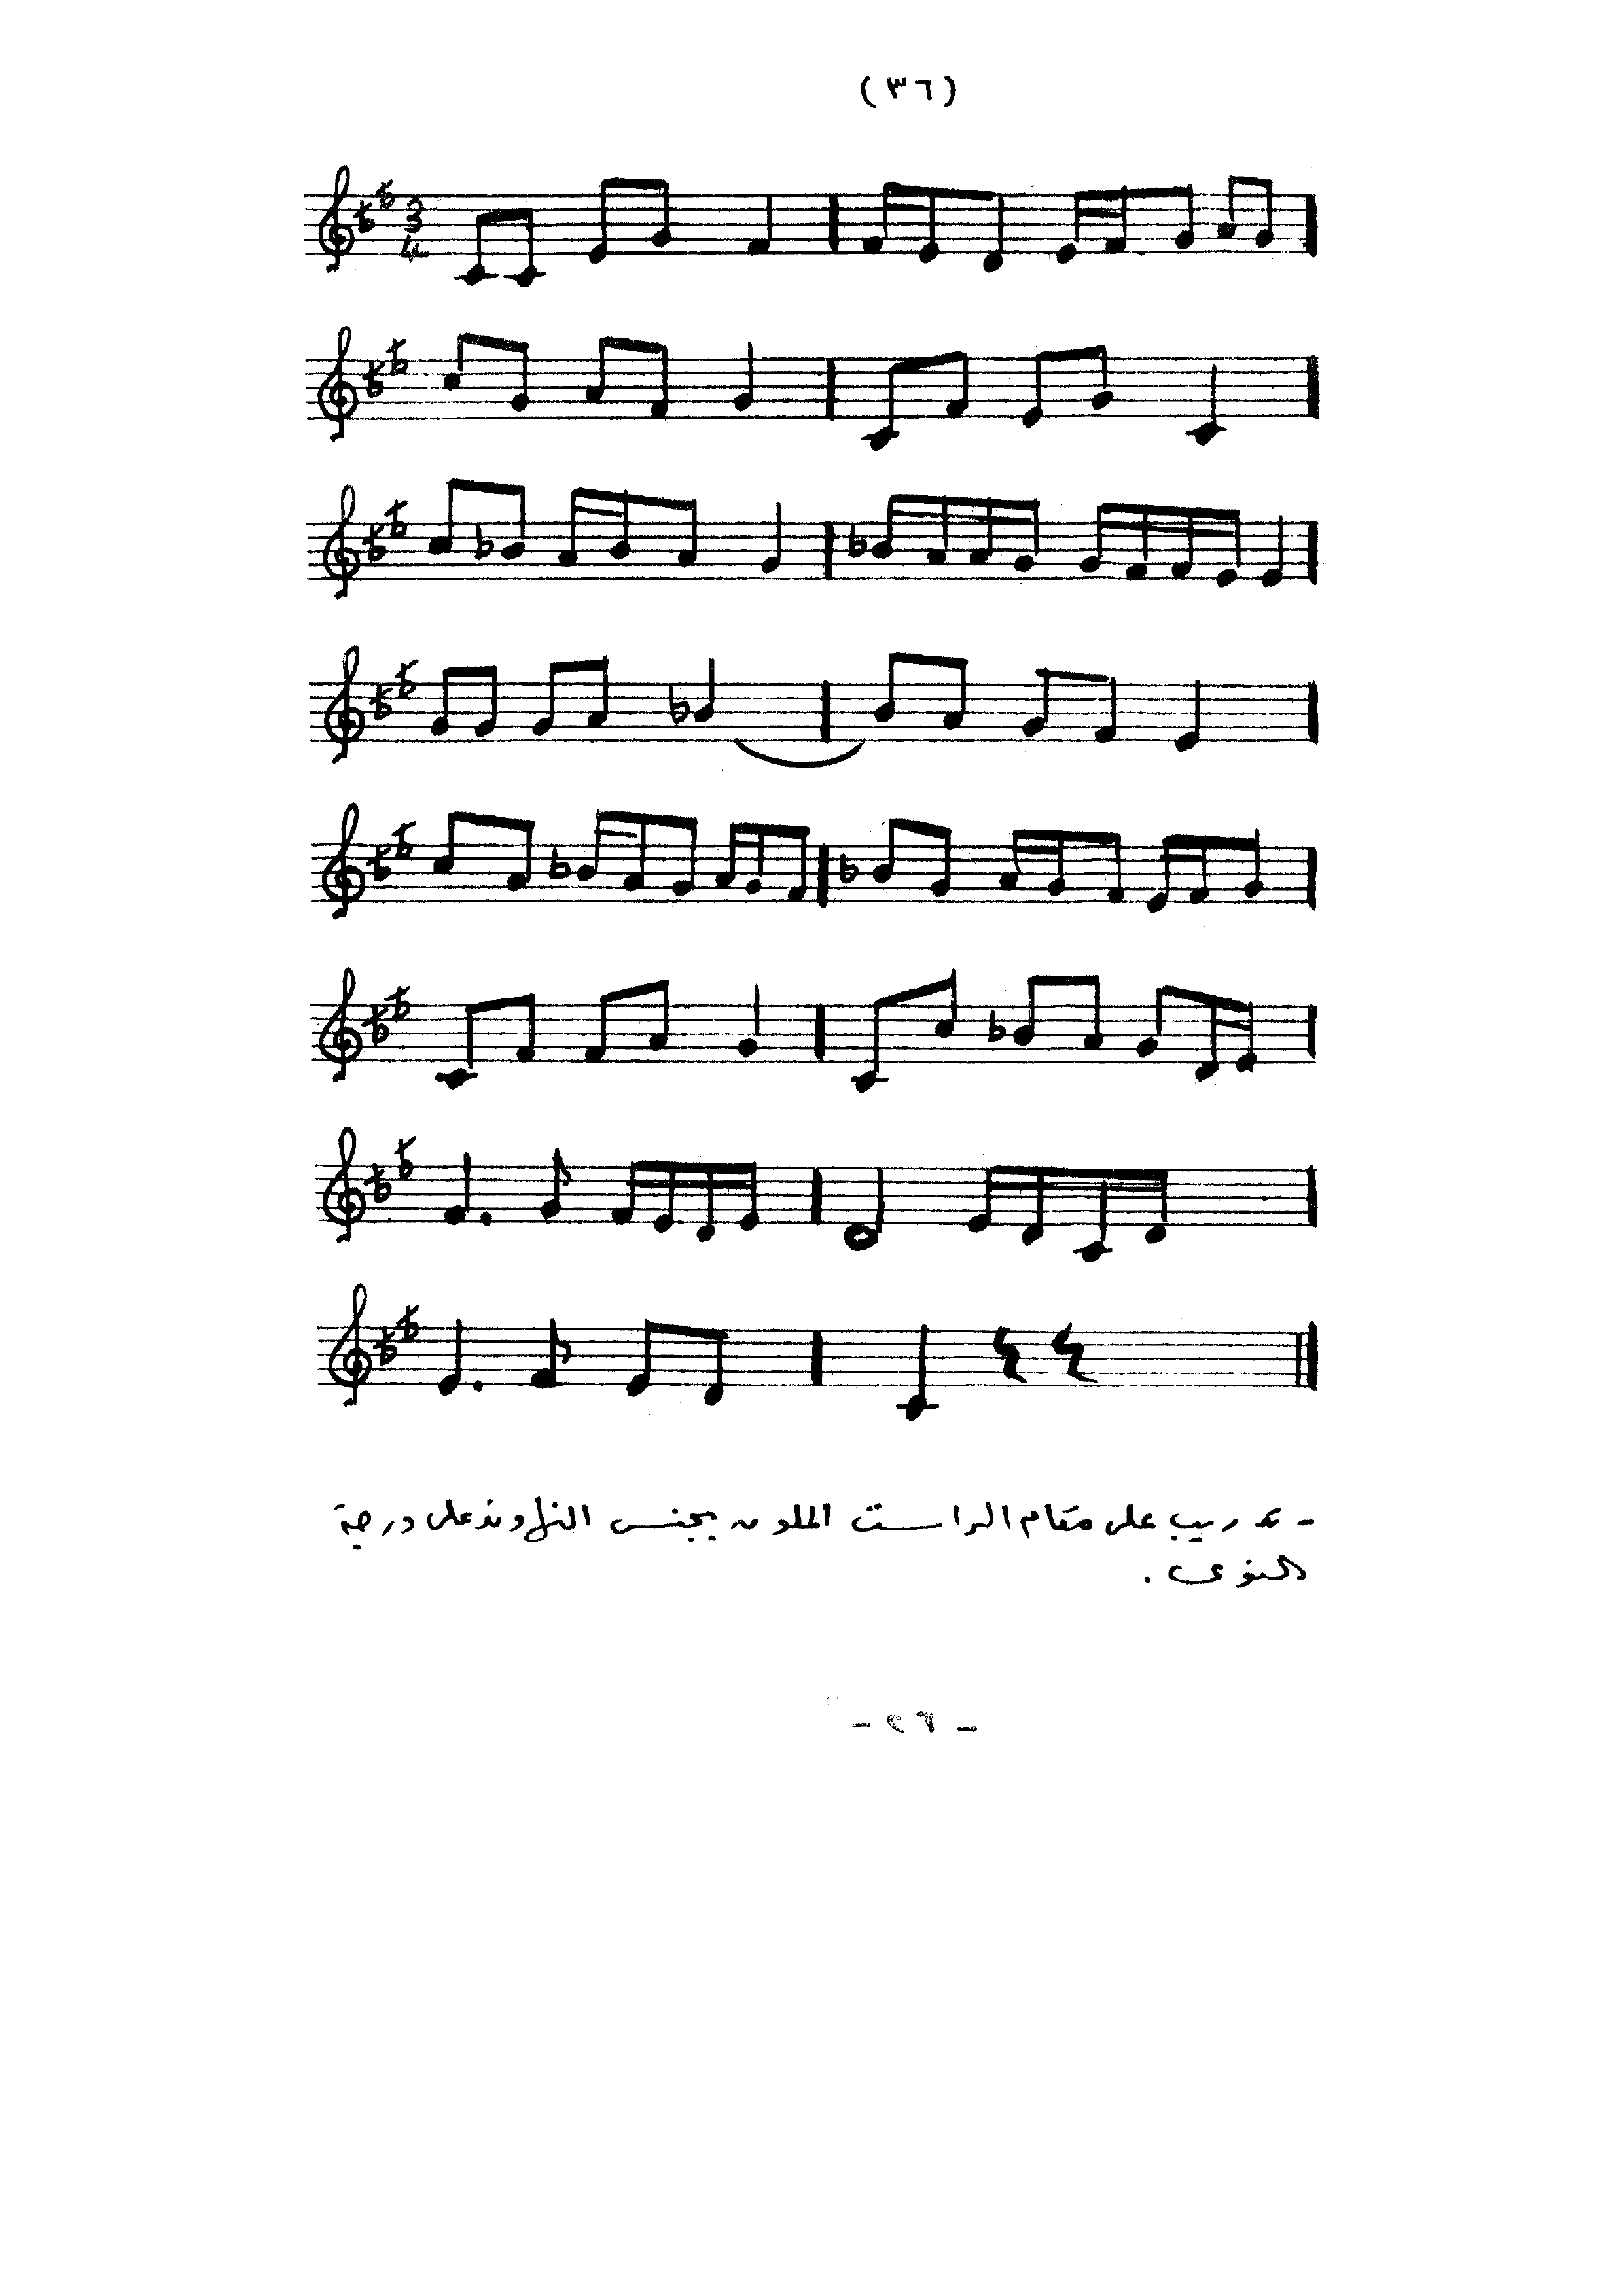 (٣٦)
3
4
- تدريب على مقام الراست الملون بجنس النهاوند على درجة
النوى .
- ٣٦ -